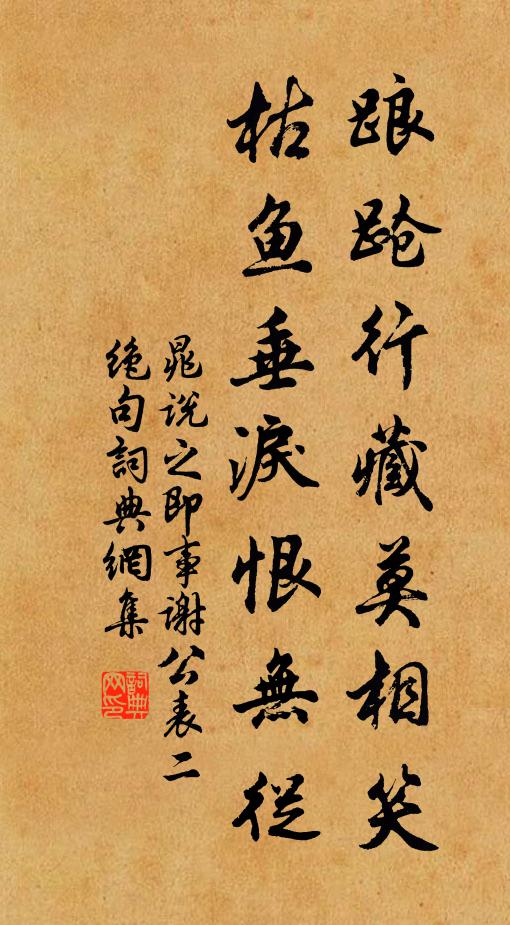 踉蹌行藏莫相笑
枯魚垂淚恨無從
晁説之即事謝公表二
絶句詞典網集
詞典
网印